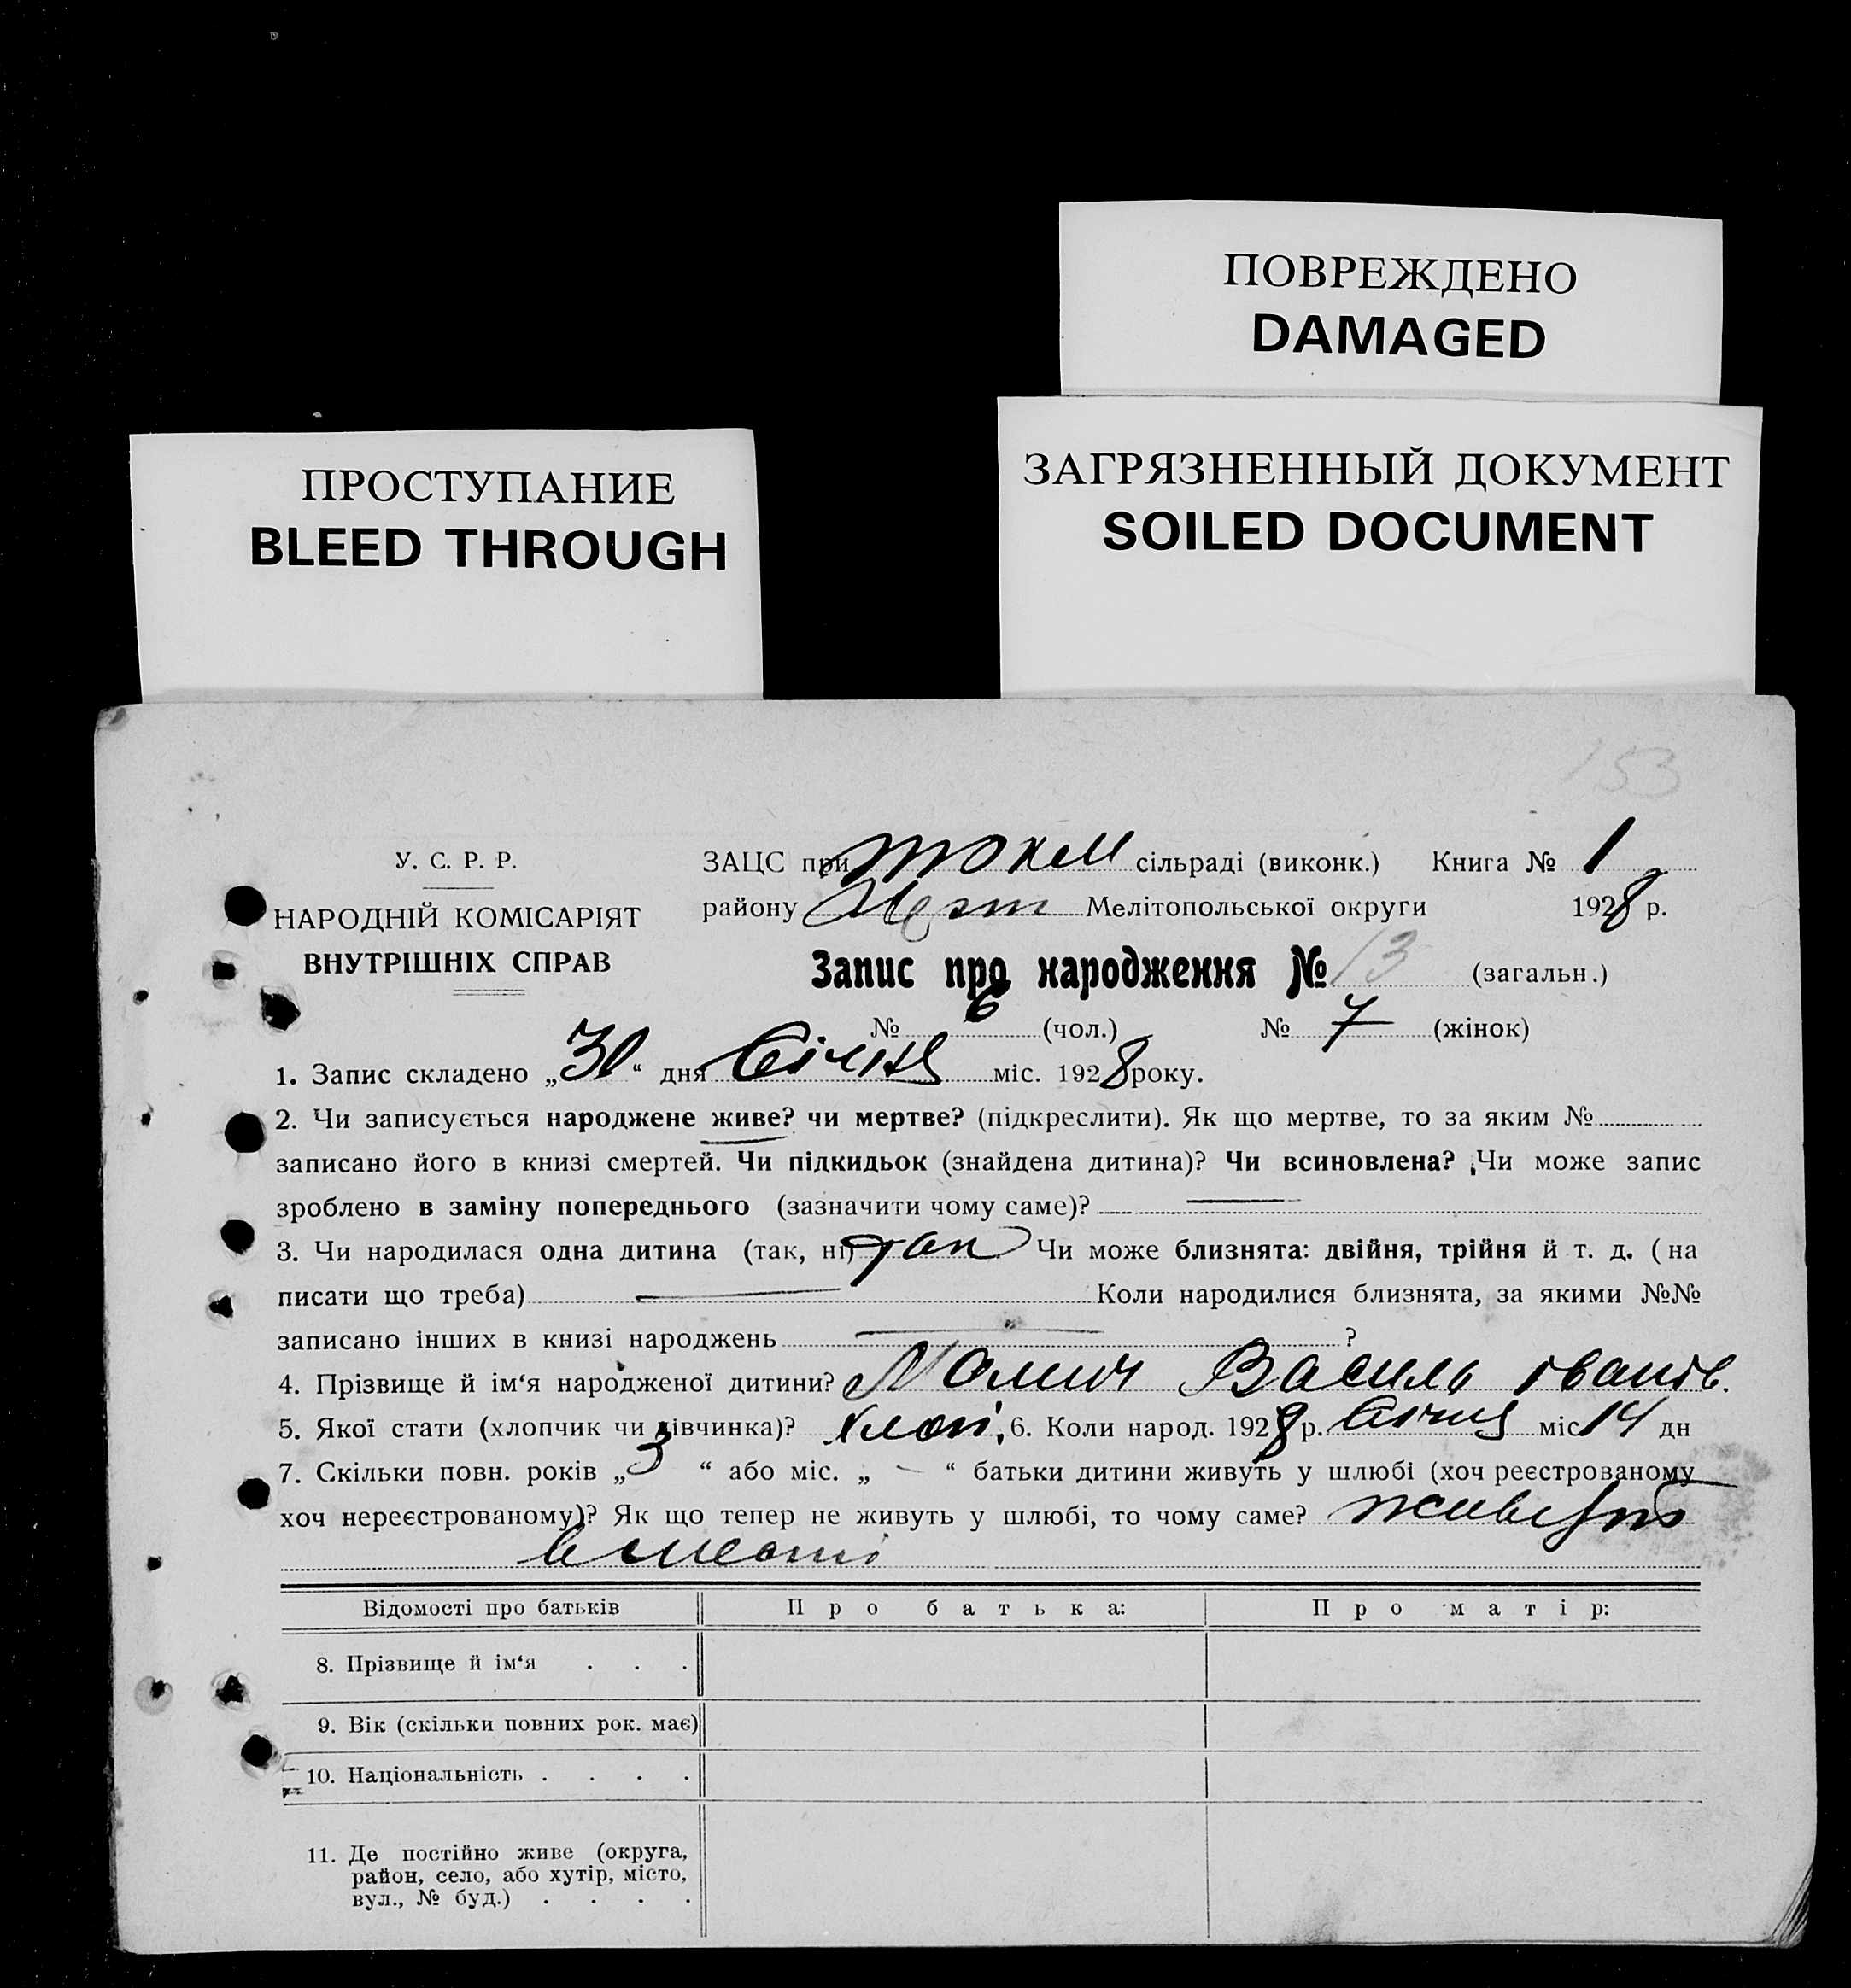 ПОВРЕЖДЕНО
DAMAGED
ПРОСТУПАНИЕ
BLEED THROUGH
ЗАГРЯЗНЕННЫЙ ДОКУМЕНТ
SOILED DOCUMENT
153
У. С. Р. Р.
НАРОДНІЙ КОМІСАРІЯТ
ВНУТРІШНІХ СПРАВ
ЗАЦС при Токм сільраді (виконк.) Книга № 1
району Мелітопольської округи 1928 р.
Запис про народження № 13 (загальн.)
№ 6 (чол.) № 7 (жінок)
1. Запис складено „30“ дня Січня міс. 1928 року.
2. Чи записується народжене живе? чи мертве? (підкреслити). Як що мертве, то за яким №
записано його в книзі смертей. Чи підкидьок (знайдена дитина)? Чи всиновлена? Чи може запис
зроблено в заміну попереднього (зазначити чому саме)? —
3. Чи народилася одна дитина (так, ні) так Чи може близнята: двійня, трійня й т. д. (на
писати що треба) — Коли народилися близнята, за якими №№
записано інших в книзі народжень — ?
4. Прізвище й ім‘я народженої дитини? Василь Іванів.
5. Якої стати (хлопчик чи дівчинка)? хлоп. 6. Коли народ. 1928 р. Січня міс 14 дн
7. Скільки повн. років „3“ або міс. „—“ батьки дитини живуть у шлюбі (хоч реєстрованому
хоч нереєстрованому)? Як що тепер не живуть у шлюбі, то чому саме? живуть
Відомості про батьків Про батька: Про матір:
8. Прізвище й ім‘я . . .
9. Вік (скільки повних рок. має)
10. Національність . . . .
11. Де постійно живе (округа,
район, село, або хутір, місто,
вул., № буд.) . . . .